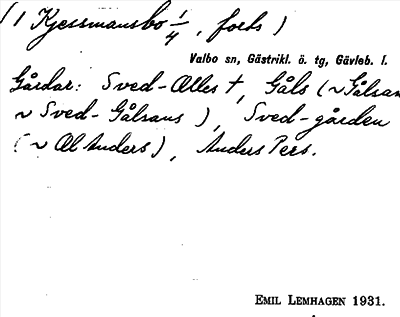 (1 Kjessmansbo 1/4, forts)
Valbo sn, Gästrikl. ö. tg, Gävleb. l.
Gårdar: Sved-Olles †, Gåls (~Gålsans
~ Sved-Gålsans), Sved-gården
(~ Ol Anders), Anders Pers.
EMIL LEMHAGEN 1931.